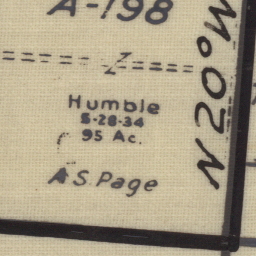 A-198
Humble
5-28-34
95 Ac.
A S. Page
N20°W